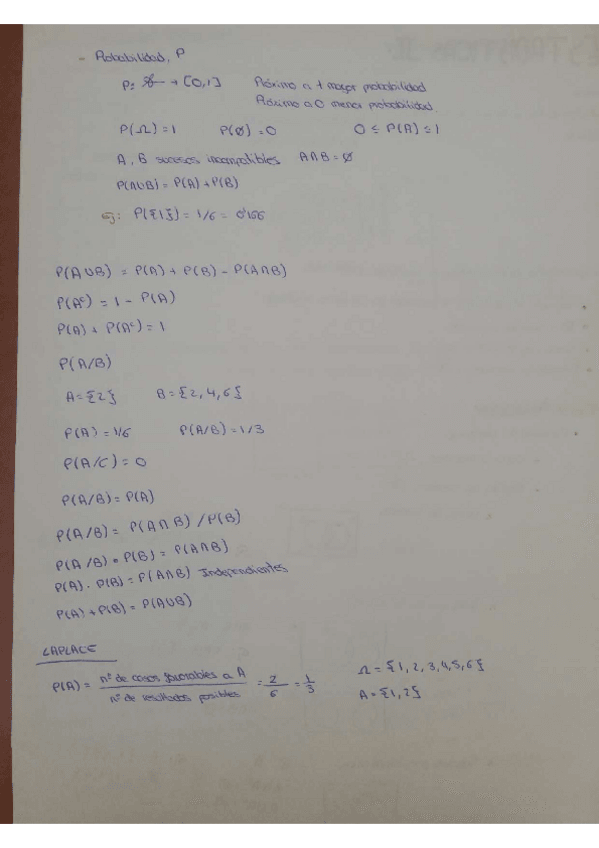 - Probabilidad, P
P: → [0,1] Próximo a 1 mayor probabilidad
Próximo a 0 menor probabilidad
P(Ω) = 1 P(Ø) = 0 0 ≤ P(A) ≤ 1
A, B sucesos incompatibles A∩B = Ø
P(A∪B) = P(A) + P(B)
Ej: P({1}) = 1/6 = 0'166
P(A∪B) = P(A) + P(B) - P(A∩B)
P(Aᶜ) = 1 - P(A)
P(A) + P(Aᶜ) = 1
P(A/B)
A = {2} B = {2, 4, 6}
P(A) = 1/6 P(A/B) = 1/3
P(A/C) = 0
P(A/B) = P(A)
P(A/B) = P(A∩B) / P(B)
P(A/B) · P(B) = P(A∩B)
P(A) · P(B) = P(A∩B) Independientes
P(A) + P(B) = P(A∪B)
LAPLACE
P(A) = nº de casos favorables a A / nº de resultados posibles = 2/6 = 1/3 Ω = {1, 2, 3, 4, 5, 6}
A = {1, 2}